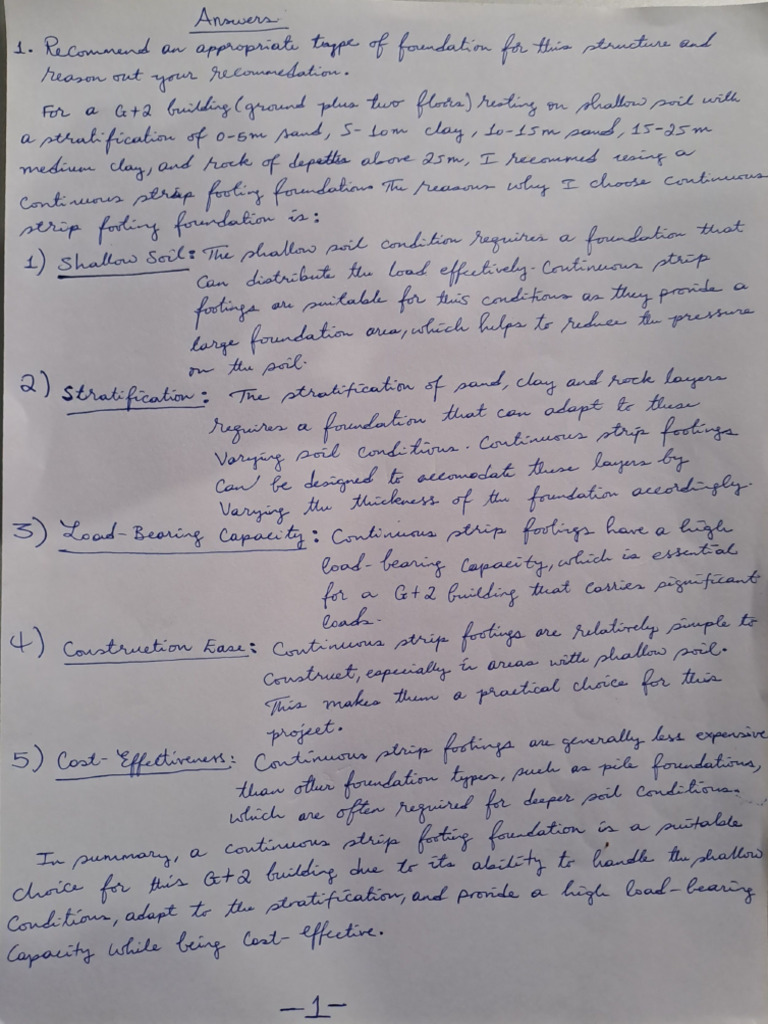 Answers
1. Recommend an appropriate type of foundation for this structure and
reason out your recommedation.
For a G+2 building (ground plus two floors) resting on shallow soil with
a stratification of 0-5m sand, 5-10m clay, 10-15m sand, 15-25m
medium clay, and rock of depths above 25m, I recommed using a
Continuous strip footing foundation. The reasons why I choose continuous
strip footing foundation is:
1) Shallow Soil: The shallow soil condition requires a foundation that
can distribute the load effectively. Continuous strip
footings are suitable for this conditions as they provide a
large foundation area, which helps to reduce the pressure
on the soil.
2) Stratification: The stratification of sand, clay and rock layers
requires a foundation that can adapt to these
Varying soil conditions. Continuous strip footings
can be designed to accomodate these layers by
Varying the thickness of the foundation accordingly.
3) Load-Bearing Capacity: Continuous strip footings have a high
load-bearing capacity, which is essential
for a G+2 building that carries significant
loads.
4) Construction Ease: Continuous strip footings are relatively simple to
construct, especially in areas with shallow soil.
This makes them a practical choice for this
project.
5) Cost-Effectiveness: Continuous strip footings are generally less expensive
than other foundation types, such as pile foundations,
which are often required for deeper soil conditions.
In summary, a continuous strip footing foundation is a suitable
choice for this G+2 building due to its ability to handle the shallow
Conditions, adapt to the stratification, and provide a high load-bearing
Capacity while being Cost-effective.
-1-